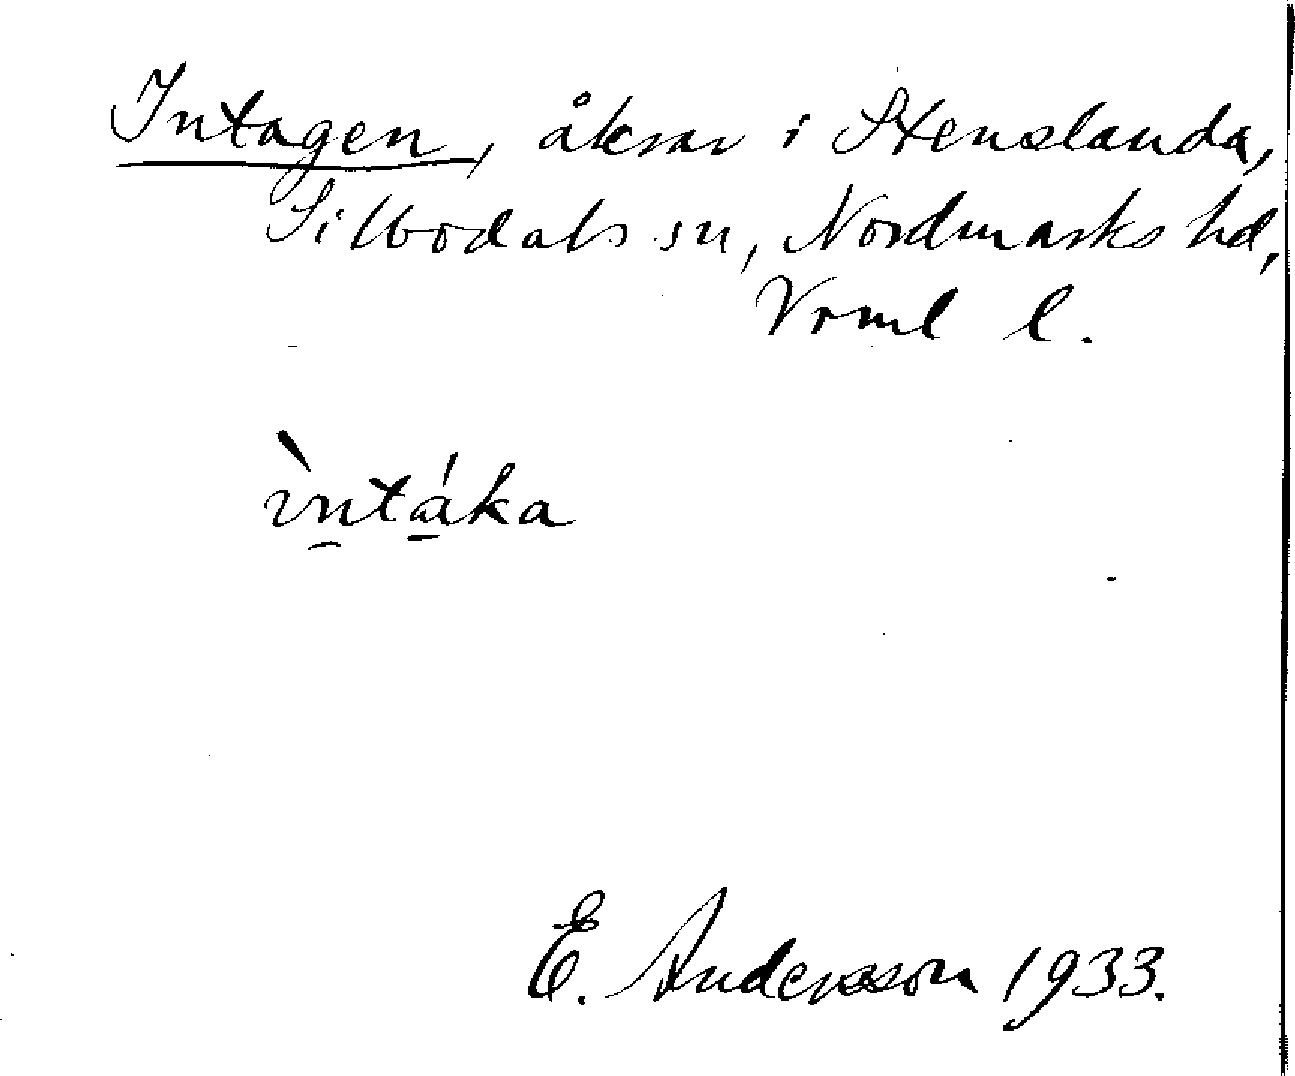 Intagen, åkrar i Stenslanda,
Silbodals sn, Nordmarks hd,
Vrml l.
ìntáka
E. Andersson 1933.